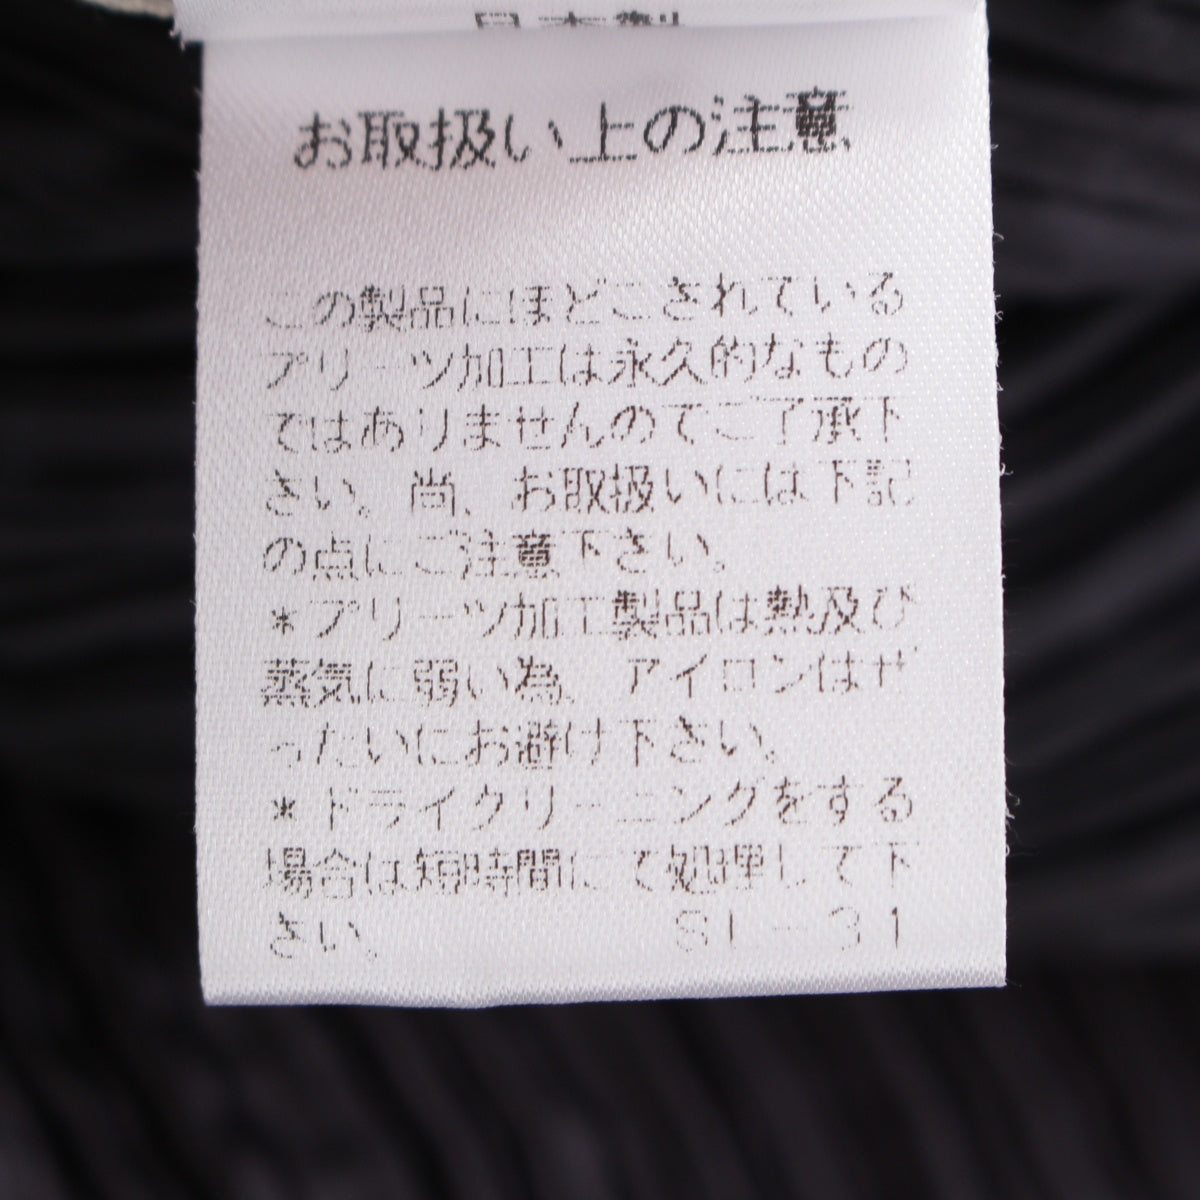 日本製
お取扱い上の注意
この製品にほどこされている
プリーツ加工は永久的なもの
ではありませんのでご了承下
さい。尚、お取扱いには下記
の点にご注意下さい。
*プリーツ加工製品は熱及び
蒸気に弱い為、アイロンはぜ
ったいにお避け下さい。
*ドライクリーニングをする
場合は短時間にて処理して下
さい。 SL-31